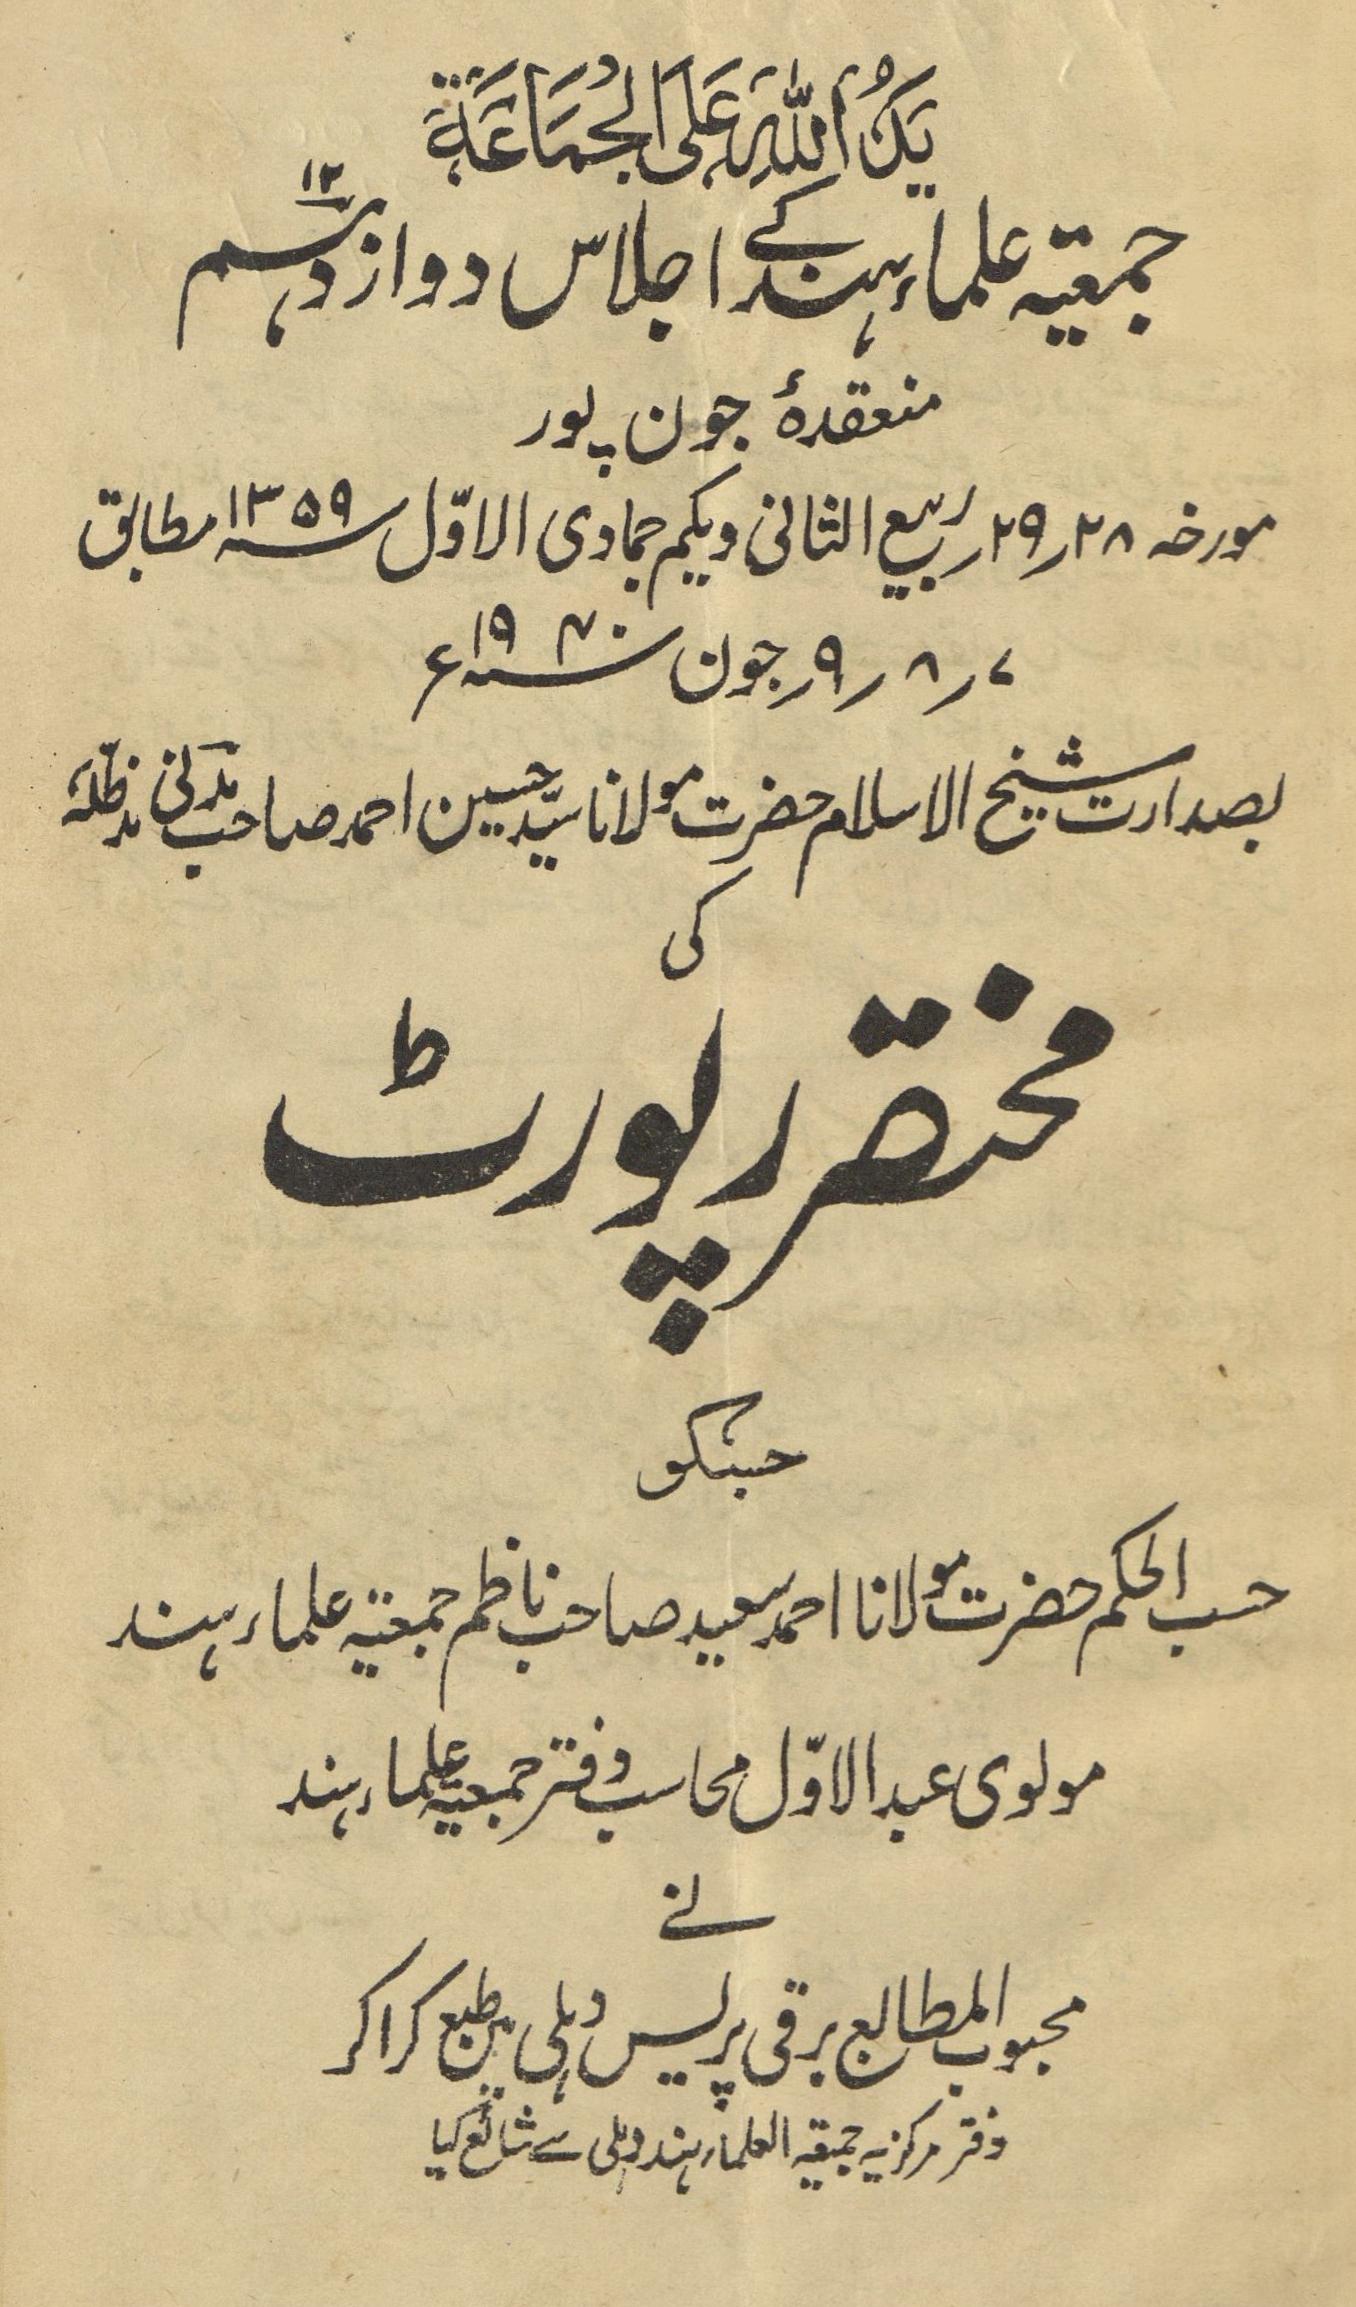 يَدُ اللّٰهِ عَلَى الْجَمَاعَةِ
جمعیۃ علماء ہند کے اجلاس دوازدہم ۱۲
منعقدۂ جون پور
مورخہ ۲۸؍۲۹؍ربیع الثانی ویکم جمادی الاوّل سنہ ۱۳۵۹ مطابق
۷؍۸؍۹؍جون سنہ ۱۹۴۰ء
بصدارت شیخ الاسلام حضرت مولانا سیّد حسین احمد صاحب مدنی مدظلّہٗ
کی
مختصر رپورٹ
جسکو
حسب الحکم حضرت مولانا احمد سعید صاحب ناظم جمعیۃ علماء ہند
مولوی عبدالاوّل محاسب دفتر جمعیۃ علماء ہند
نے
محبوب المطابع برقی پریس دہلی میں طبع کرا کر
دفتر مرکزیہ جمعیۃ العلماء ہند دہلی سے شائع کیا